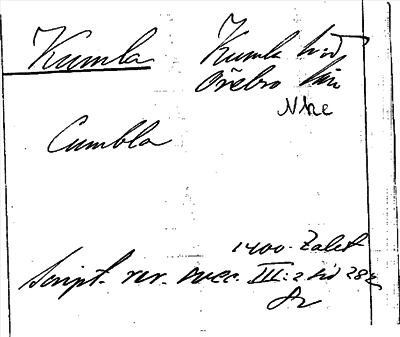 Kumla Kumla hd
Örebro län
Nke
Cumbla
1400-talet
Script. rer. svec. III:2 sid 282